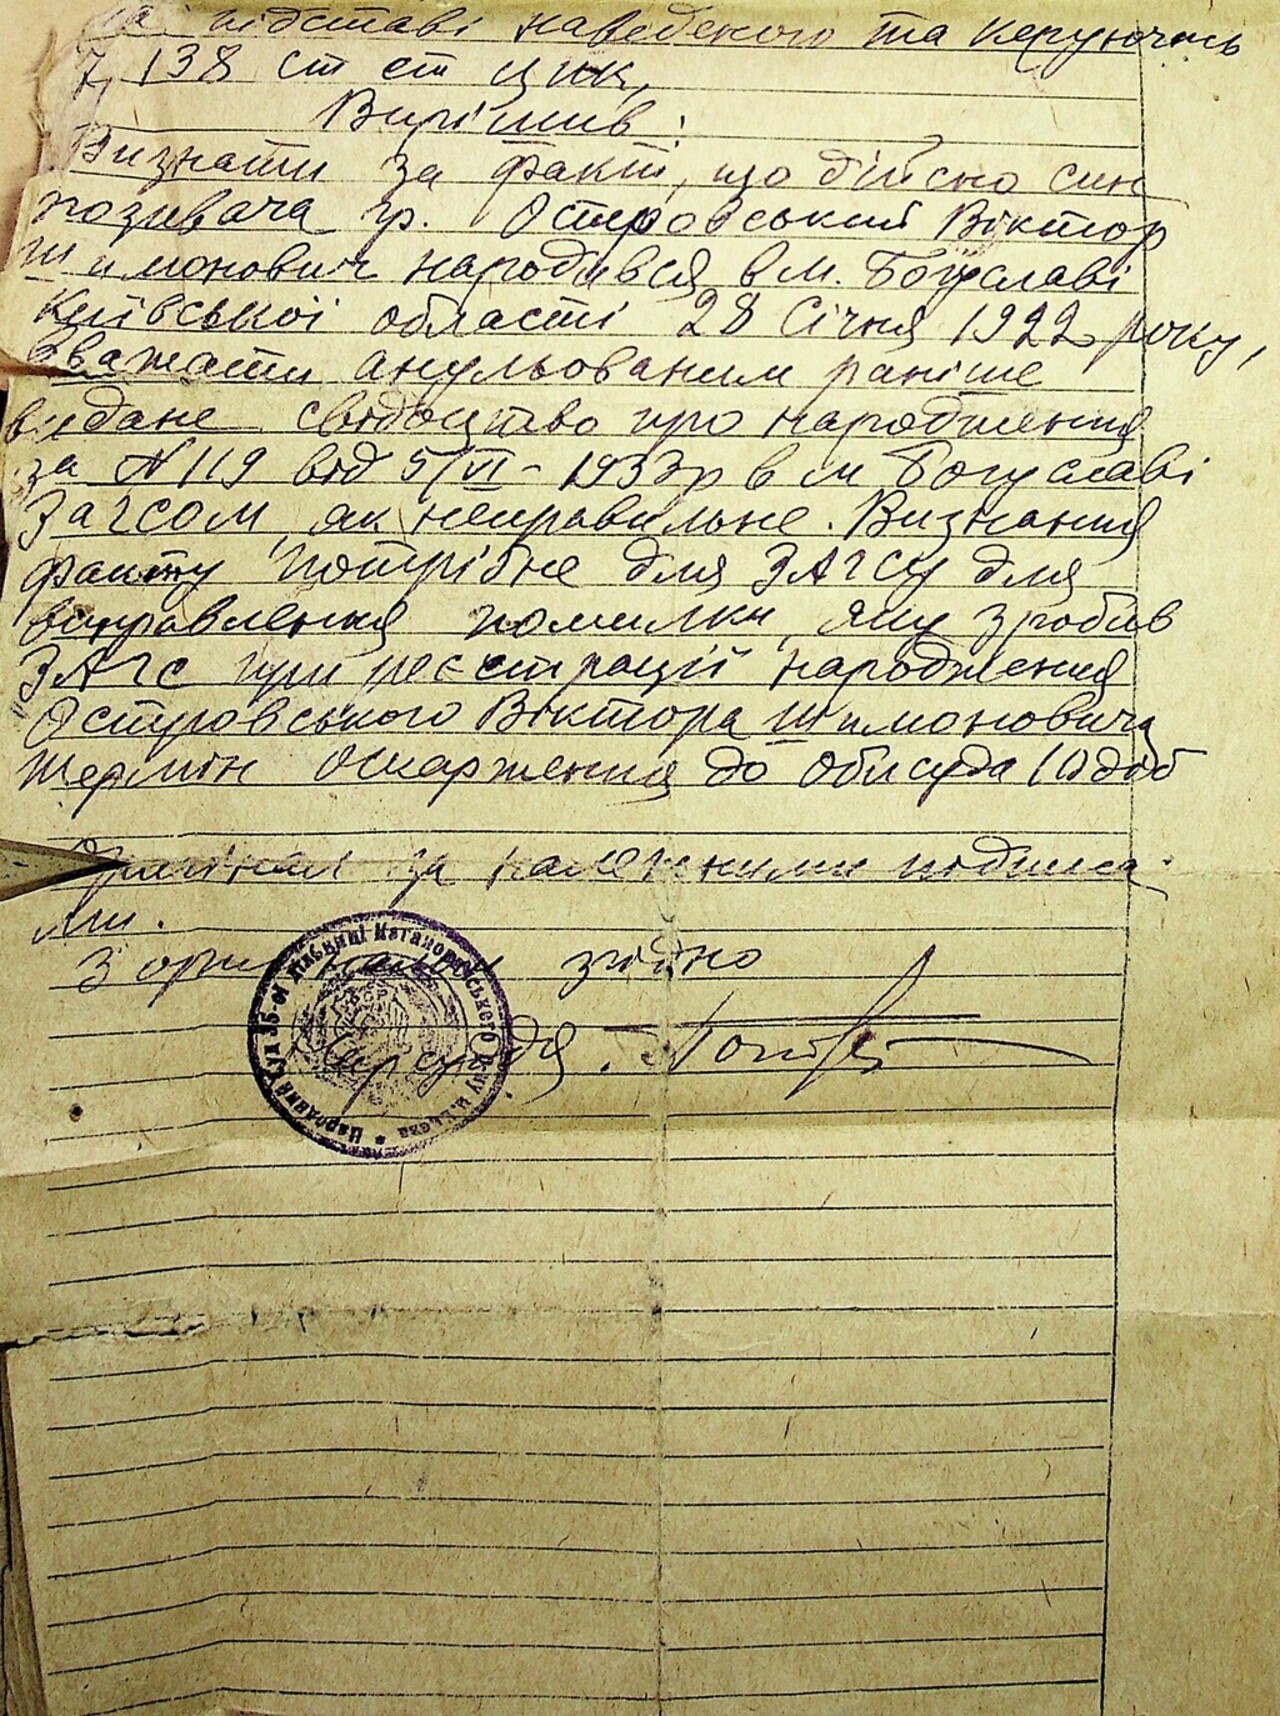 На підставі наведеного та керуючись
7, 138 ст ст ЦПК,
Вирішив:
Визнати за факт, що дійсно син
позивача гр. Островський Віктор
Шимонович народився в м. Богуславі
Київської області 28 Січня 1922 року,
вважати анульованим раніше
видане свідоцтво про народження
за N 119 від 5/VI - 1933р в м Богуславі
ЗАГСОМ, як неправильне. Визнання
факту потрібне для ЗАГСу для
виправлення помилки, яку зробив
ЗАГС при реєстрації народження
Островського Віктора Шимоновича
термін оскарження до Облсуда 10 діб
Оригінал за належними подписа-
ми.
З оригіналом згідно
Нарсуддя
Народний Суд 35-ої дільниці Кагановичського р-ну м. Києва